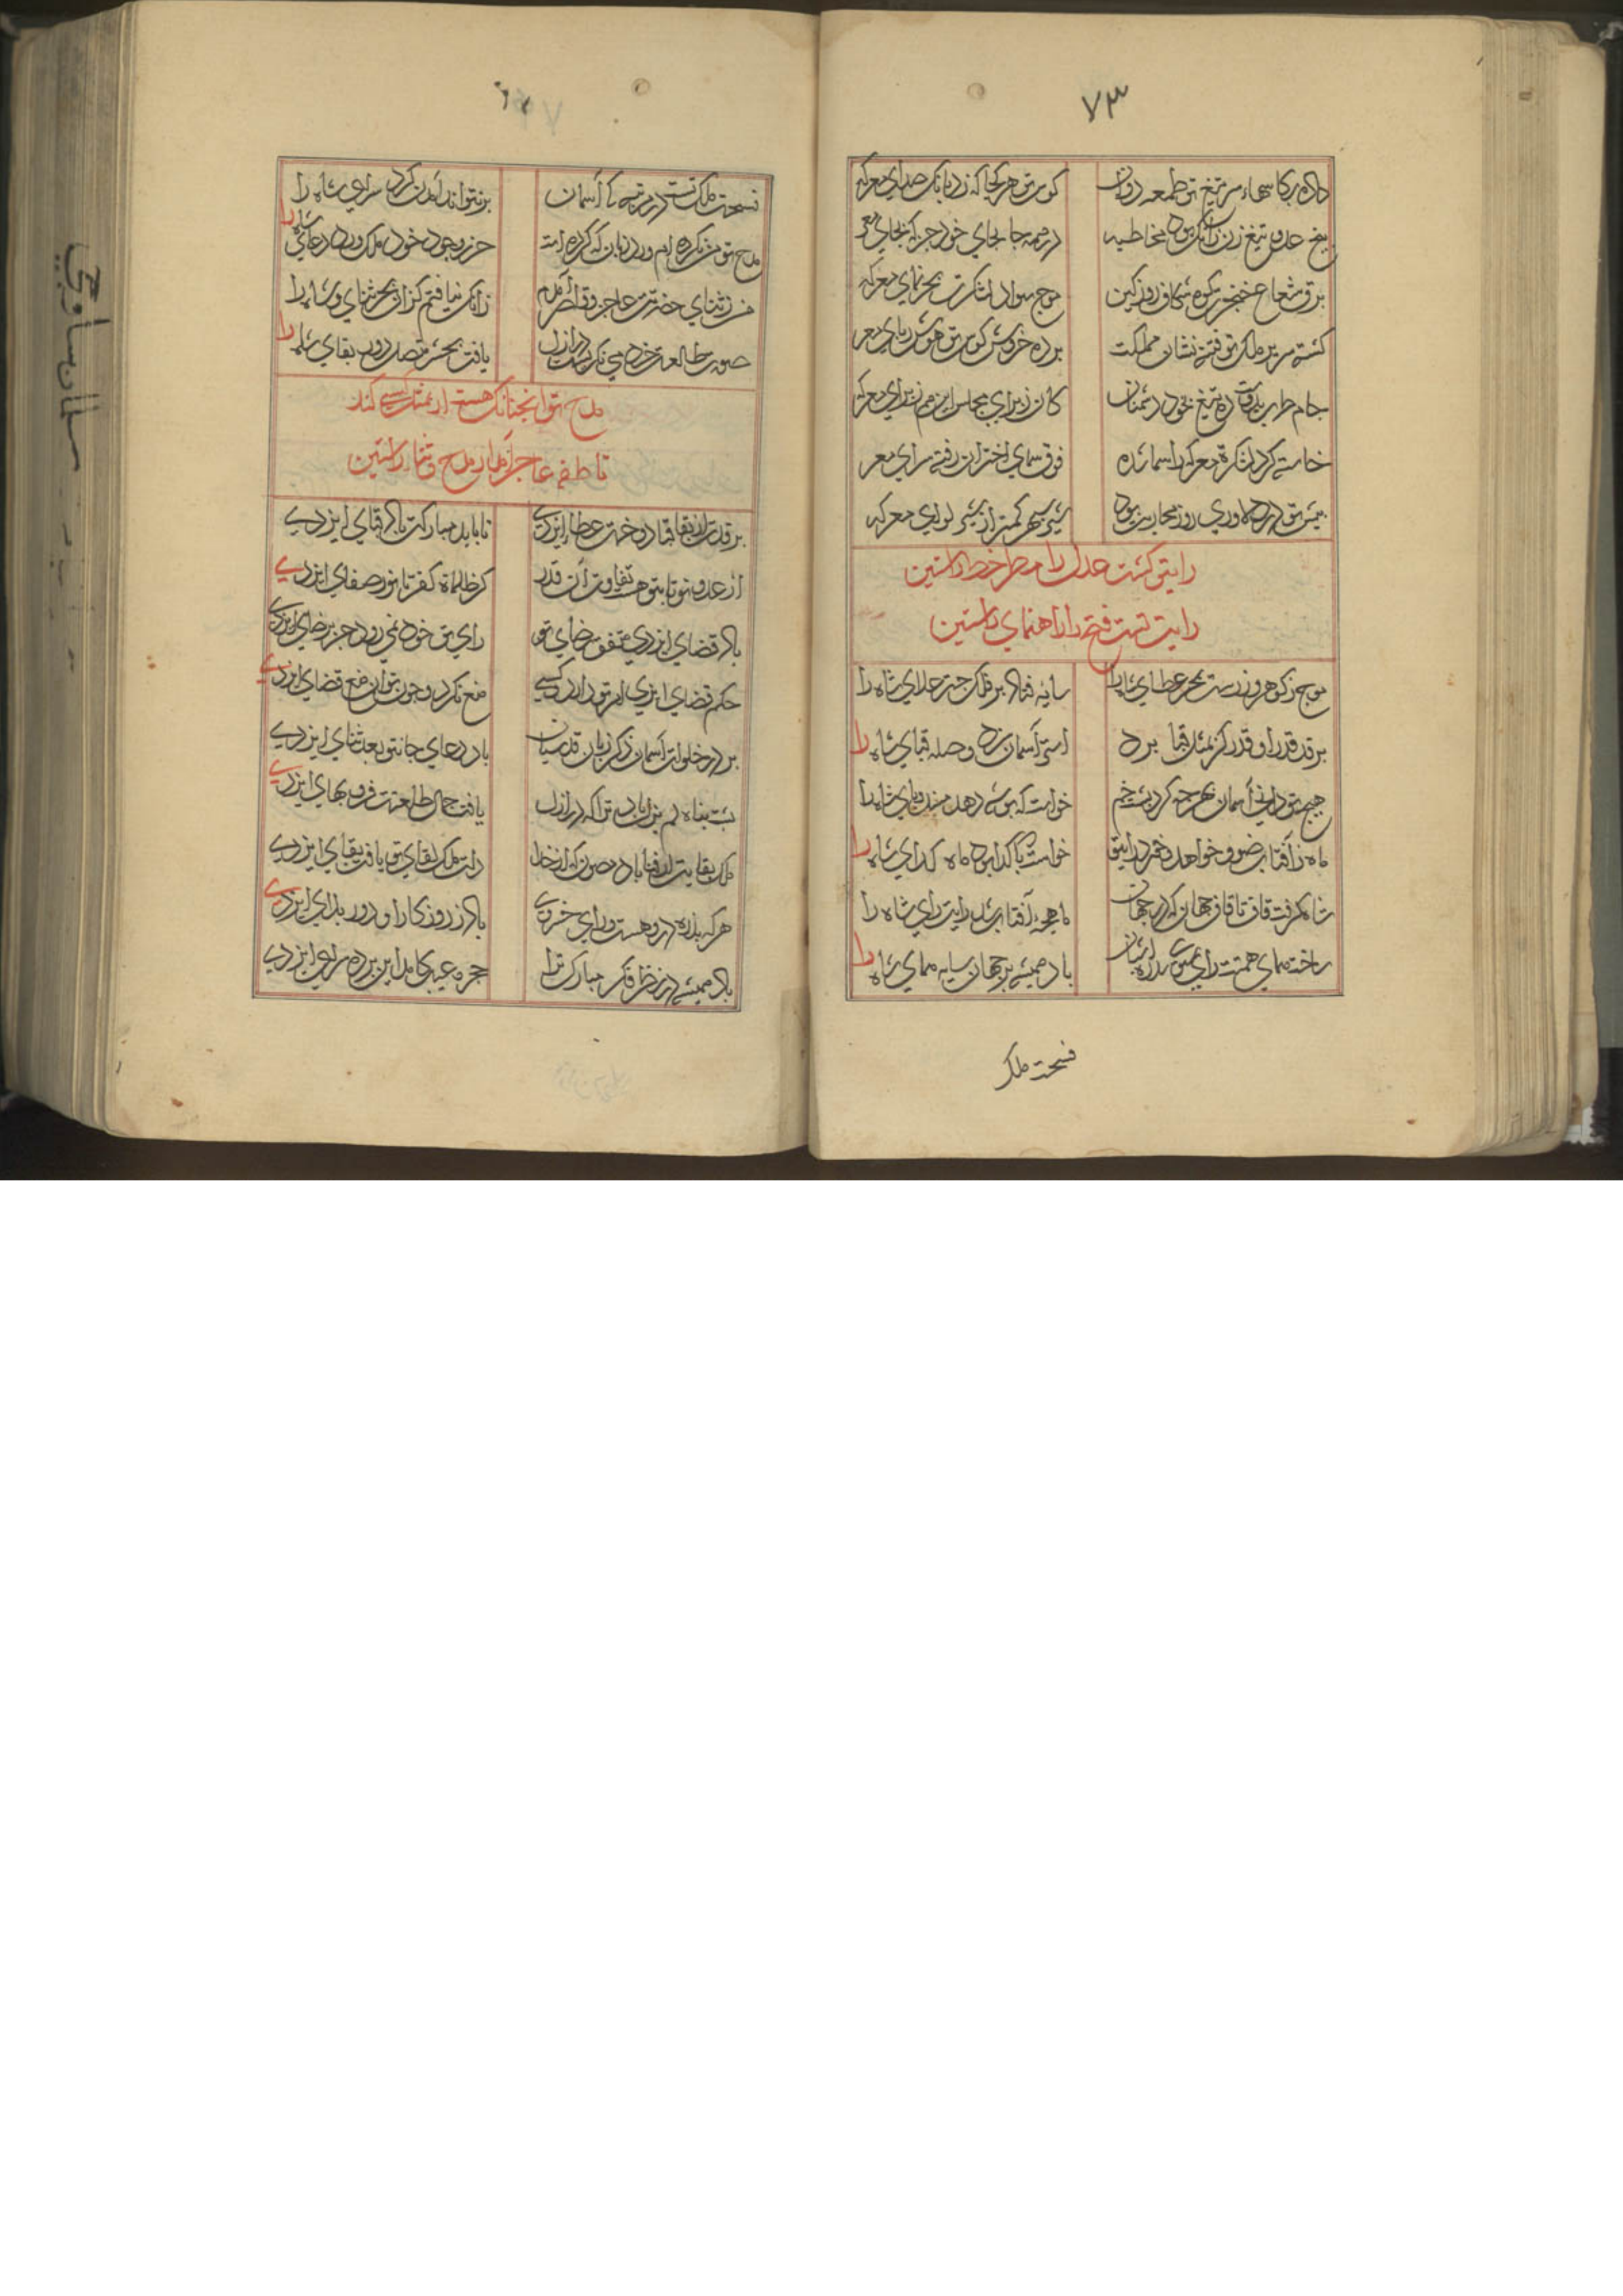 ۷۳
داده بکاسهاء سر تیغ تو طعمه ددان کوس تو هر کجا که زد بانک صدای معرکه
تیغ عدو تیغ زن زانک بود مخاطبه در همه جا بجای خود جز که بجای معر
برق شعاع خنجرت کوه شکاف روز کین موج سواد لشکرت بحر نمای معرکه
کشته سریر ملک تو فتنه نشان مملکت برده خروش کوس تو هوش ربای معر
جام طرب بدوستان ده تیغ بخون دشمنان کان ز برای مجلس این هم ز برای معرکه
خاسته کرد لشکرت معرکه را سما شده فوق سمای اختران رفته سرای معر
پیش تو در دلاوری روز محاربت بود شیر سپهر کمتر از شیر لوای معرکه
رایتی کشت عدل را مطر خط راستین
رایت تست فتح را راهنمای راستین
موج ز کوهر و زرست بحر عطای شاه را سایه فتاد بر فلک چتر علای شاه را
بر قد قدر او قدر کز مثل قبا برد استر آسمان سزد وصله قبای شاه را
هیچ تو دانی آسمان بهر چه کرد پشت خم خواست که بوسه دهد مسند و پای شاه را
ماه ز آفتاب ضو خواهد و خود در اینق خواست که تا کدا بود ماه کدای شاه را
تا بگرفت قاف تا قاف جهان که در جهان ماهچه آفتاب شد رایت رای شاه را
ساخته همای همتت رای عرش آشیان باد همیشه بر جهان سایه همای شاه را
فسحت ملک
فسحت ملک تست در مرتبه تا آسمان بر نتواند آمدن کرد سرای شاه را
مدح تو من نکرده ام ورد زبان که کرده است حرز وجود خود ملک ورد دعای شاه را
من ز ثنای حضرتت عاجز و قاصر آمدم زانک نیافتم کران بحر ثنای شاه را
صورت طالعت خرد می نکرید در ازل یافت بحشر متصل دور بقای شاه را
مدح تو آنچنانک هست ار بمثل کسی کند
ناطقه عاجز آمد از مدح و ثنای راستین
بر قدت از بقا قبا دوخت عطای ایزدی تا بابد مبارکت باد قبای ایزدی
از عدو تو تا بتو هست تفاوت آن قدر کز ظلمات کفر تا نور صفای ایزدی
باد قضای ایزدی متفق رضای تو رای تو خود نمی رود جز برضای ایزدی
حکم قضای ایزدی امر تو را کسی منع نکرد و چون توان منع قضای ایزدی
بر در خلوات آسمان ذکر زبان قدسیان باد دعای جانتو بعد ثنای ایزدی
پشت پناه لم یزل باد ترا که در ازل یافت جمال طلعتت فر و بهای ایزدی
ملک بقایت از فنا باد مصون که از خدا دولت ملک بقای تو یافت بقای ایزدی
هر که بذره در وهست ورای خردی باد ز روزکار او دور بلای ایزدی
باد همیشه در نظر فکر مبارک ترا حجره غیب کامد این پرده سرای ایزدی
سلمان ساوجی